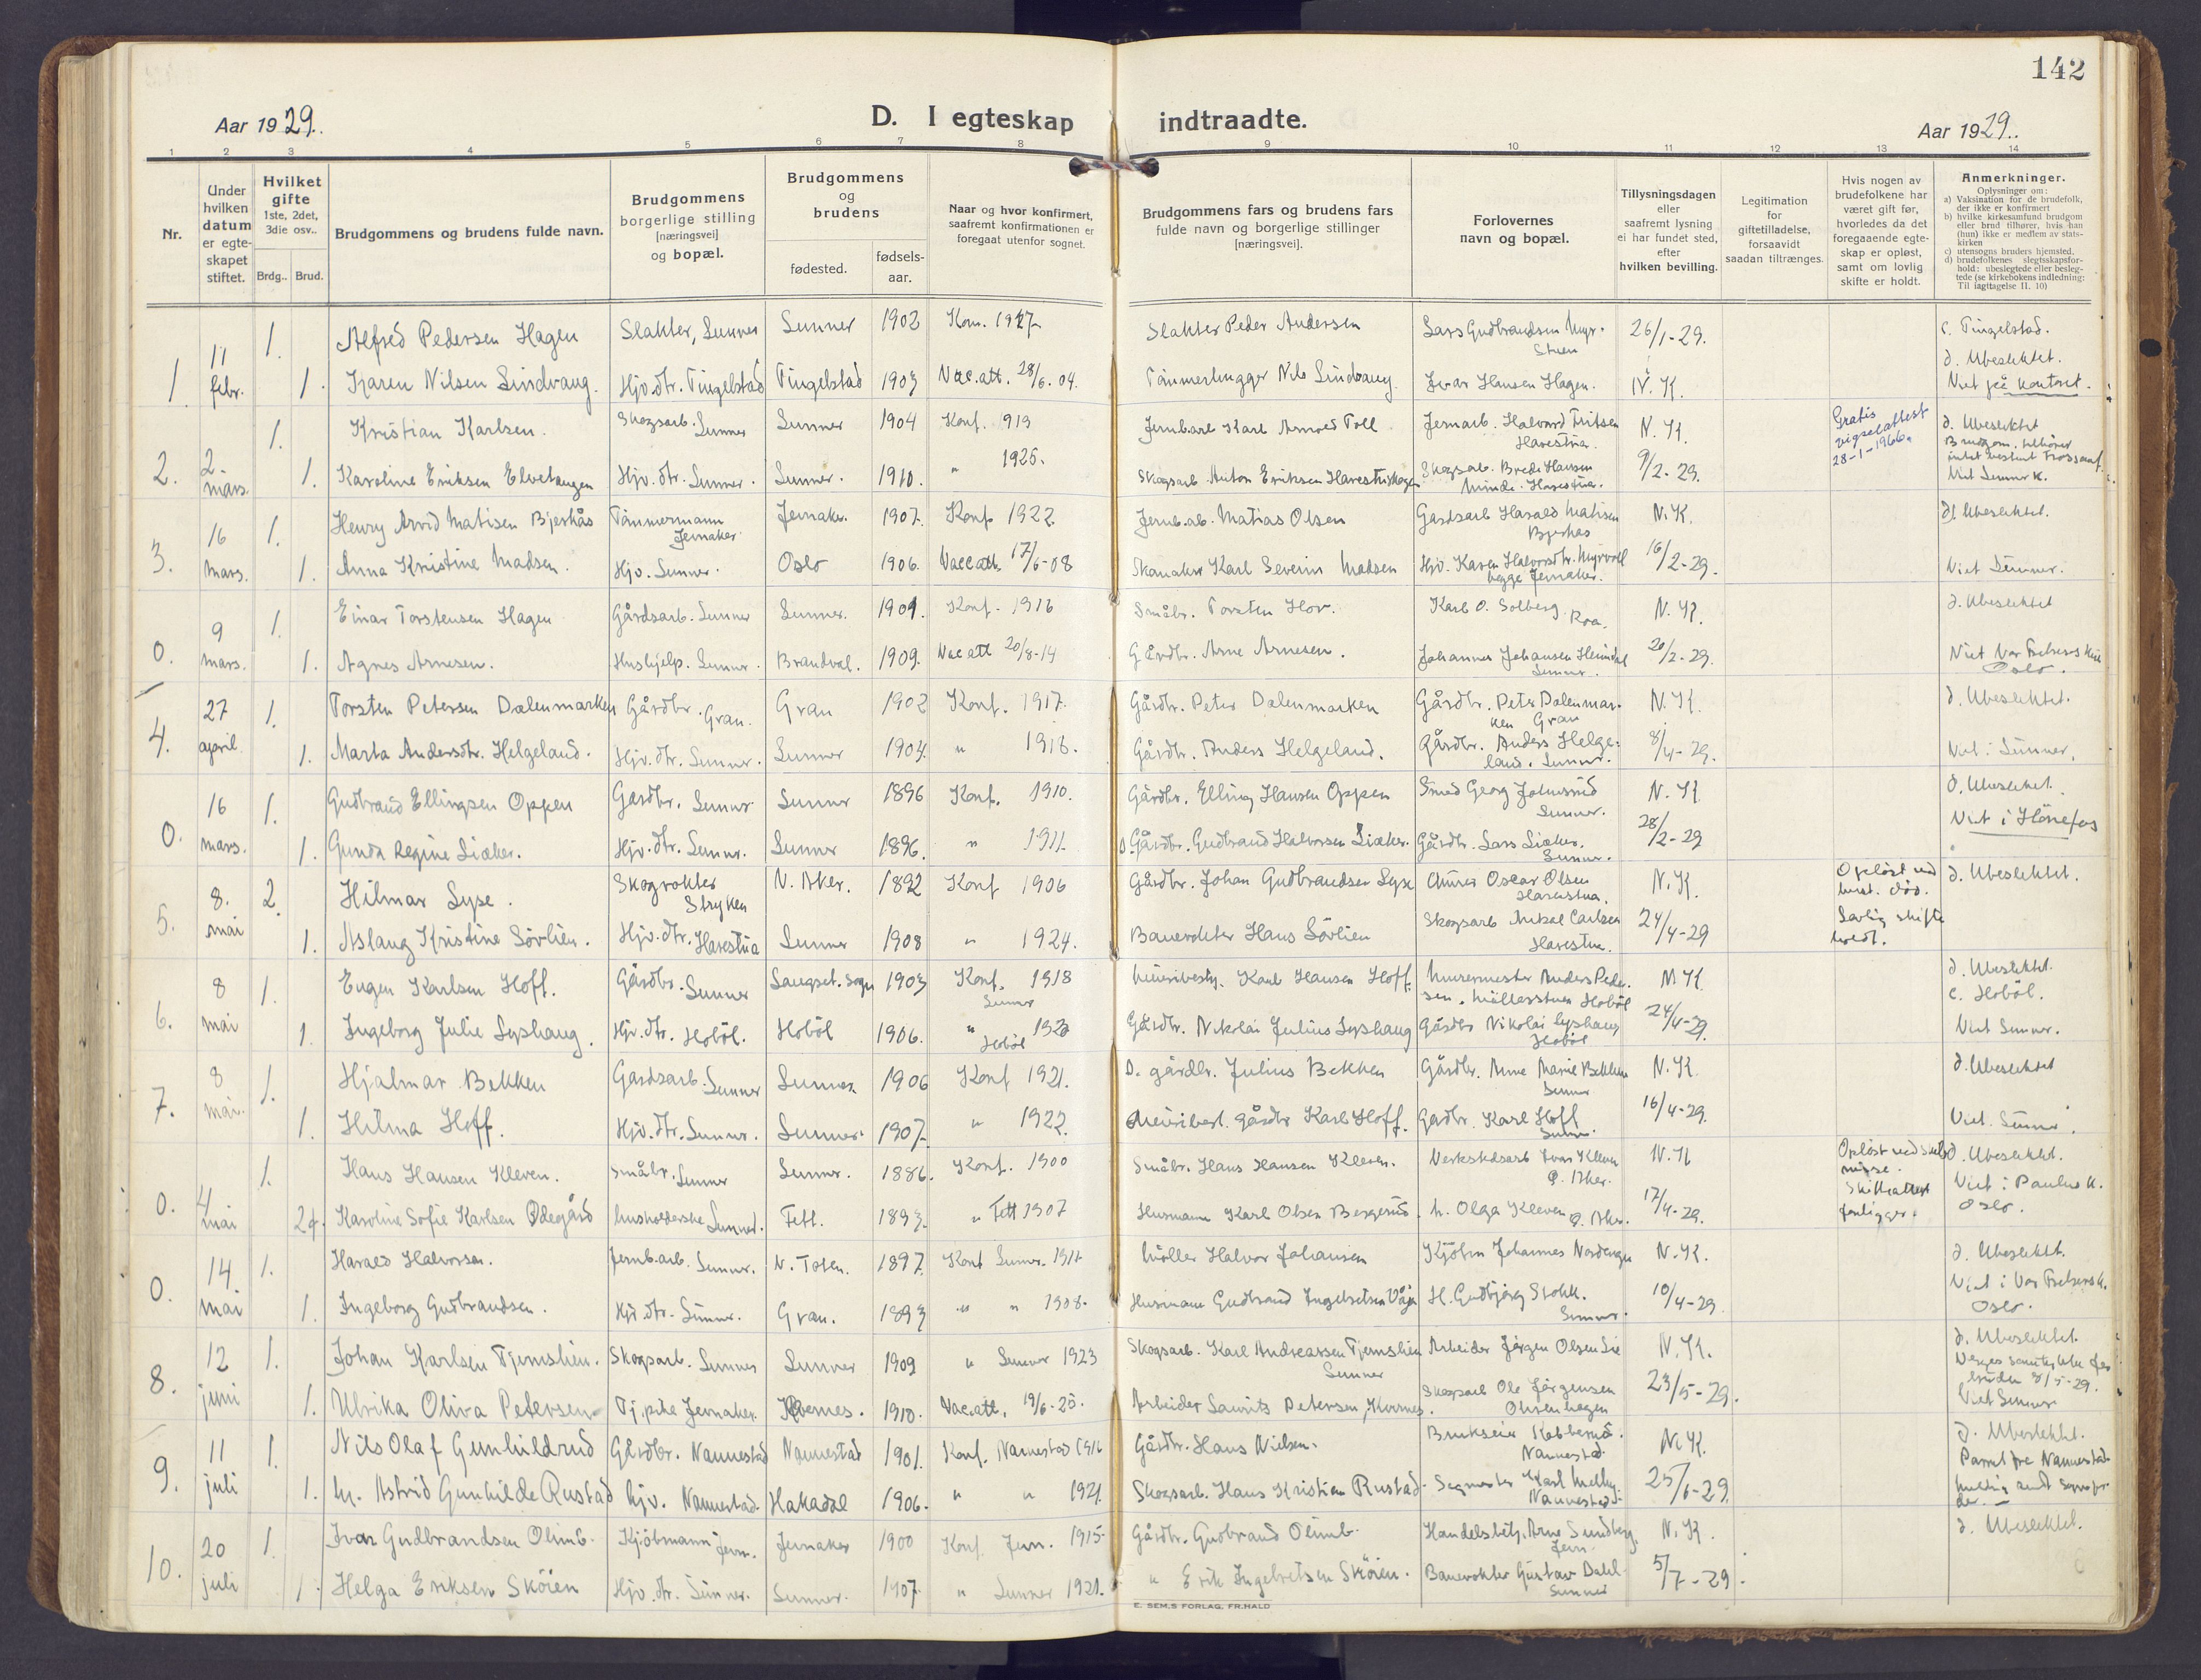 142
Aar 1929.
D. I egteskap indtraadte.
Aar 1929.
1 2 3 4 5 6 7 8 9 10 11 12 13 14
Nr.
Under hvilken datum er egteskapet stiftet.
Hvilket gifte 1ste, 2det, 3die osv..
Brdg.. Brud.
Brudgommens og brudens fulde navn.
Brudgommens borgerlige stilling [næringsvei] og bopæl.
Brudgommens og brudens
fødested.
fødselsaar.
Naar og hvor konfirmert, saafremt konfirmationen er foregaat utenfor sognet.
Brudgommens fars og brudens fars fulde navn og borgerlige stillinger [næringsvei].
Forlovernes navn og bopæl.
Tillysningsdagen eller saafremt lysning ei har fundet sted, efter hvilken bevilling.
Legitimation for giftetilladelse, forsaavidt saadan tiltrænges.
Hvis nogen av brudefolkene har været gift før, hvorledes da det foregaaende egteskap er opløst, samt om lovlig skifte er holdt.
Anmerkninger.
Oplysninger om:
a) Vaksination for de brudefolk, der ikke er konfirmert
b) hvilke kirkesamfund brudgom eller brud tilhører, hvis han (hun) ikke er medlem av statskirken
c) utensogns bruders hjemsted.
d) brudefolkenes slegtsskapsforhold: ubeslegtede eller beslegtede (se kirkebokens indledning: Til iagttagelse II. 10)
1. 11 febr. 1. Alfred Pedersen Hagen Slakter, Lunner Lunner 1902 Kon. 1917 Slakter Peder Andersen Lars Gudbrandsen Myrstuen 26/1-29. c. Tingelstad. d. Ubeslektet.
1. Karen Nilsen Lindvang. Hjv.dtr. Tingelstad Tingelstad 1903 Vac.att. 28/6.04. Tømmerhugger Nils Lindvang. Ivar Hansen Hagen. N.K. Viet på kontoret.
2. 2. mars. 1. Kristian Karlsen. Skogsarb. Lunner Lunner 1904 Konf. 919 Jernb.arb Karl Toll Jernarb. Halvord Fritsen Harestua. N.K. Gratis vigselattest 28-1-1966 d. Ubeslektet Brudgom. tilhører intet bestemt
1. Karoline Eriksen Elvetangen Hjv.dtr. Lunner. Lunner. 1910. " 1925. Skogsarb Anton Eriksen Skogsarb. Brede Hansen Minde. Harestua. 9/2-29. Viet Lunner k.
3. 16 mars. 1. Henry Arvid Matisen Bjerkås Tømmermann Jevnaker Jevnaker. 1907. Konf 1922 Jernb.ab. Matias Olsen Gardsarb Harald Matisen Bjerkås N.K. d. Ubeslektet.
1. Anna Kristine Madsen. Hjv. Lunner. Oslo 1906. Vacc.att. 17/6-08 Skomaker Karl Severin Madsen Hjv. Karen Halvorsdtr. Myrvoll begge Jevnaker. 16/2-29. Viet Lunner.
0. 9 mars. 1. Einar Torstensen Hagen Gårdsarb. Lunner Lunner. 1901. Konf. 1916 Småbr. Torsten Hov. Karl O. Solberg Roa. N.K. d. Ubeslektet
1. Agnes Arnesen. Hushjelp. Lunner. Brandval. 1909. Vac att 20/8-14 Gårdbr. Arne Arnesen. Johannes Johansen Lunner. 20/2-29. Viet Vor Frelsers Oslo.
4. 27 april 1. Torsten Petersen Dalenmarken Gårdbr. Gran. Gran 1902 Konf. 1917. Gårdbr. Peter Dalenmarken Gårdbr. Peter Dalenmarken Gran N.K. d. Ubeslektet.
1. Marta Andersdtr. Helgeland. Hjv.dtr. Lunner. Lunner 1903. " 1918. Gårdbr. Anders Helgeland. Gårdbr. Anders Helgeland. Lunner. 8/4-29. Viet i Lunner.
0. 16 mars. 1. Gudbrand Ellingsen Oppen Gardbr. Lunner Lunner 1896 Konf. 1910. Gårdbr. Elling Hansen Oppen Smed Georg Lunner. N.K. d. Ubeslektet.
1. Gunda Regine Liøker. Hjv.dtr. Lunner. Lunner 1896. " 1911. Gårdbr. Gudbrand Halvorsen Liøker. Gårdbr. Lars Liøker. Lunner. 28/2-29 Viet i Hønefos
5. 8. mai 2. Hilmar Lyse. Skogvokter Stryken N. Aker. 1892 Konf 1906 Gårdbr. Johan Gudbrandsen Lyse Oscar Olsen Harestua. N.K. Opløst ved hust. død. d. Ubeslektet.
1. Aslaug Kristine Sørlien. Hjv.dtr. Harestua Lunner 1908 " 1924. Banevokter Hans Sørlien Skogsarb Mikal Carlsen Harestua. 24/4-29 Lovlig skifte holdt.
6. 8 mai 1. Eugen Karlsen Hoff. Gårdbr. Lunner Laugset. sogn 1903 Konf. 1918 Lunner Meieribesty. Karl Hansen Hoff. Murermester Anders Pedersen. Hobøl N.K. d. Ubeslektet. c. Hobøl.
1. Ingeborg Julie Lyshaug. Hjv.dtr. Hobøl. Hobøl 1906. " Hobøl 1920 Gårdbr. Nikolai Julius Lyshaug Gårdbr Nikolai Lyshaug Hobøl 24/4-29. Viet Lunner.
7. 8 mai. 1. Hjalmar Bekken Gardsarb. Lunner Lunner 1906 Konf 1921. D. gårdbr. Julius Bekken Gårdbr. Anne Marie Bekken Lunner N.K. d. Ubeslektet
1. Hilma Hoff. Hjv.dtr. Lunner. Lunner. 1907. " 1922. Meieribest. gårdbr Karl Hoff. Gardbr. Karl Hoff Lunner. 16/4-29. Viet. Lunner.
0. 4 mai 1. Hans Hansen Kleven. Småbr. Lunner Lunner. 1886. Konf. 1900 Småbr. Hans Hansen Kleven. Verkstedsarb Ivar Kleven Ø. Aker. N.K. Opløst ved d. Ubeslektet.
2 Karoline Sofie Karlsen Ødegård husholderske Lunner. Fett. 1893. " Fett 1907 Husmann Karl Olsen Bergerud. Olga Kleven Ø. Aker. 17/4-29. Skifteattest foreligger. Viet i Paulus k. Oslo.
0. 14 mai 1. Harald Halvorsen. Jernb.arb. Lunner. V. Toten. 1897. Konf Lunner. 1911 Møller Halvor Johansen Johannes Nordengen N.K. d. Ubeslektt.
1. Ingeborg Gudbrandsen. Hjv.dtr. Lunner. Gran. 1893 " " 1908. Husmann Gudbrand H. Gudbjørg Stokk. Lunner. 10/4-29. Viet i Vor Frelsers k. Oslo.
8. 12 juni 1. Johan Karlsen Tjernslien. Skogsarb. Lunner Lunner 1909 " Lunner 1923 Skogsarb. Karl Andreassen Tjernslien Lunner Arbeider Jørgen Olsen Lie N.K. d. Ubeslektet.
1. Ulrika Oliva Petersen Tj.pike Jevnaker. Kvernes. 1910. Vac.att. 19/6-25. Arbeider Laurits Petersen, Kvernes. Skogsarb Ole Jørgensen Olsenhagen 23/5-29. Viet Lunner
9. 11 juli 1. Nils Olaf Gunhildrud Gårdbr. Nannestad Nannestad 1901. Konf. Nannestad 1916 Gårdbr. Hans Nielsen. Brukseier Kobberud. Nannestad N.K. d. Ubeslektet. Parret fra Nannestad
1. M. Astrid Gunhilde Rustad hjv. Nannestad. Hakadal 1906. " " 1921. Skogsarb. Hans Kristian Rustad. Sagmester Karl Melby. Nannestad. 25/6-29.
10. 20 juli 1. Ivar Gudbrandsen Olimb. Kjøbmann Jevn. Jevnaker 1900 Konf. Jevn. 1915 Gårdbr. Gudbrand Olimb. Handelsbetj. Arne Sundberg. Jevn. N.K. d. Ubeslektet.
1. Helga Eriksen Skøien Hjv.dtr. Lunner. Lunner. 1907. " Lunner 1921. " Erik Ingebretsen Skøien. Banevokter Gustav Dahl. Lunner 5/7-29.
E. SEM,S FORLAG, FR.HALD